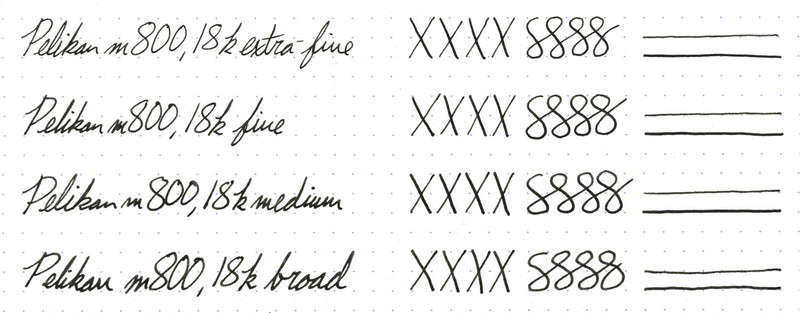 Pelikan m800, 18k extra-fine XXXX 8888
Pelikan m800, 18k fine XXXX 8888
Pelikan m800, 18k medium XXXX 8888
Pelikan m800, 18k broad XXXX 8888